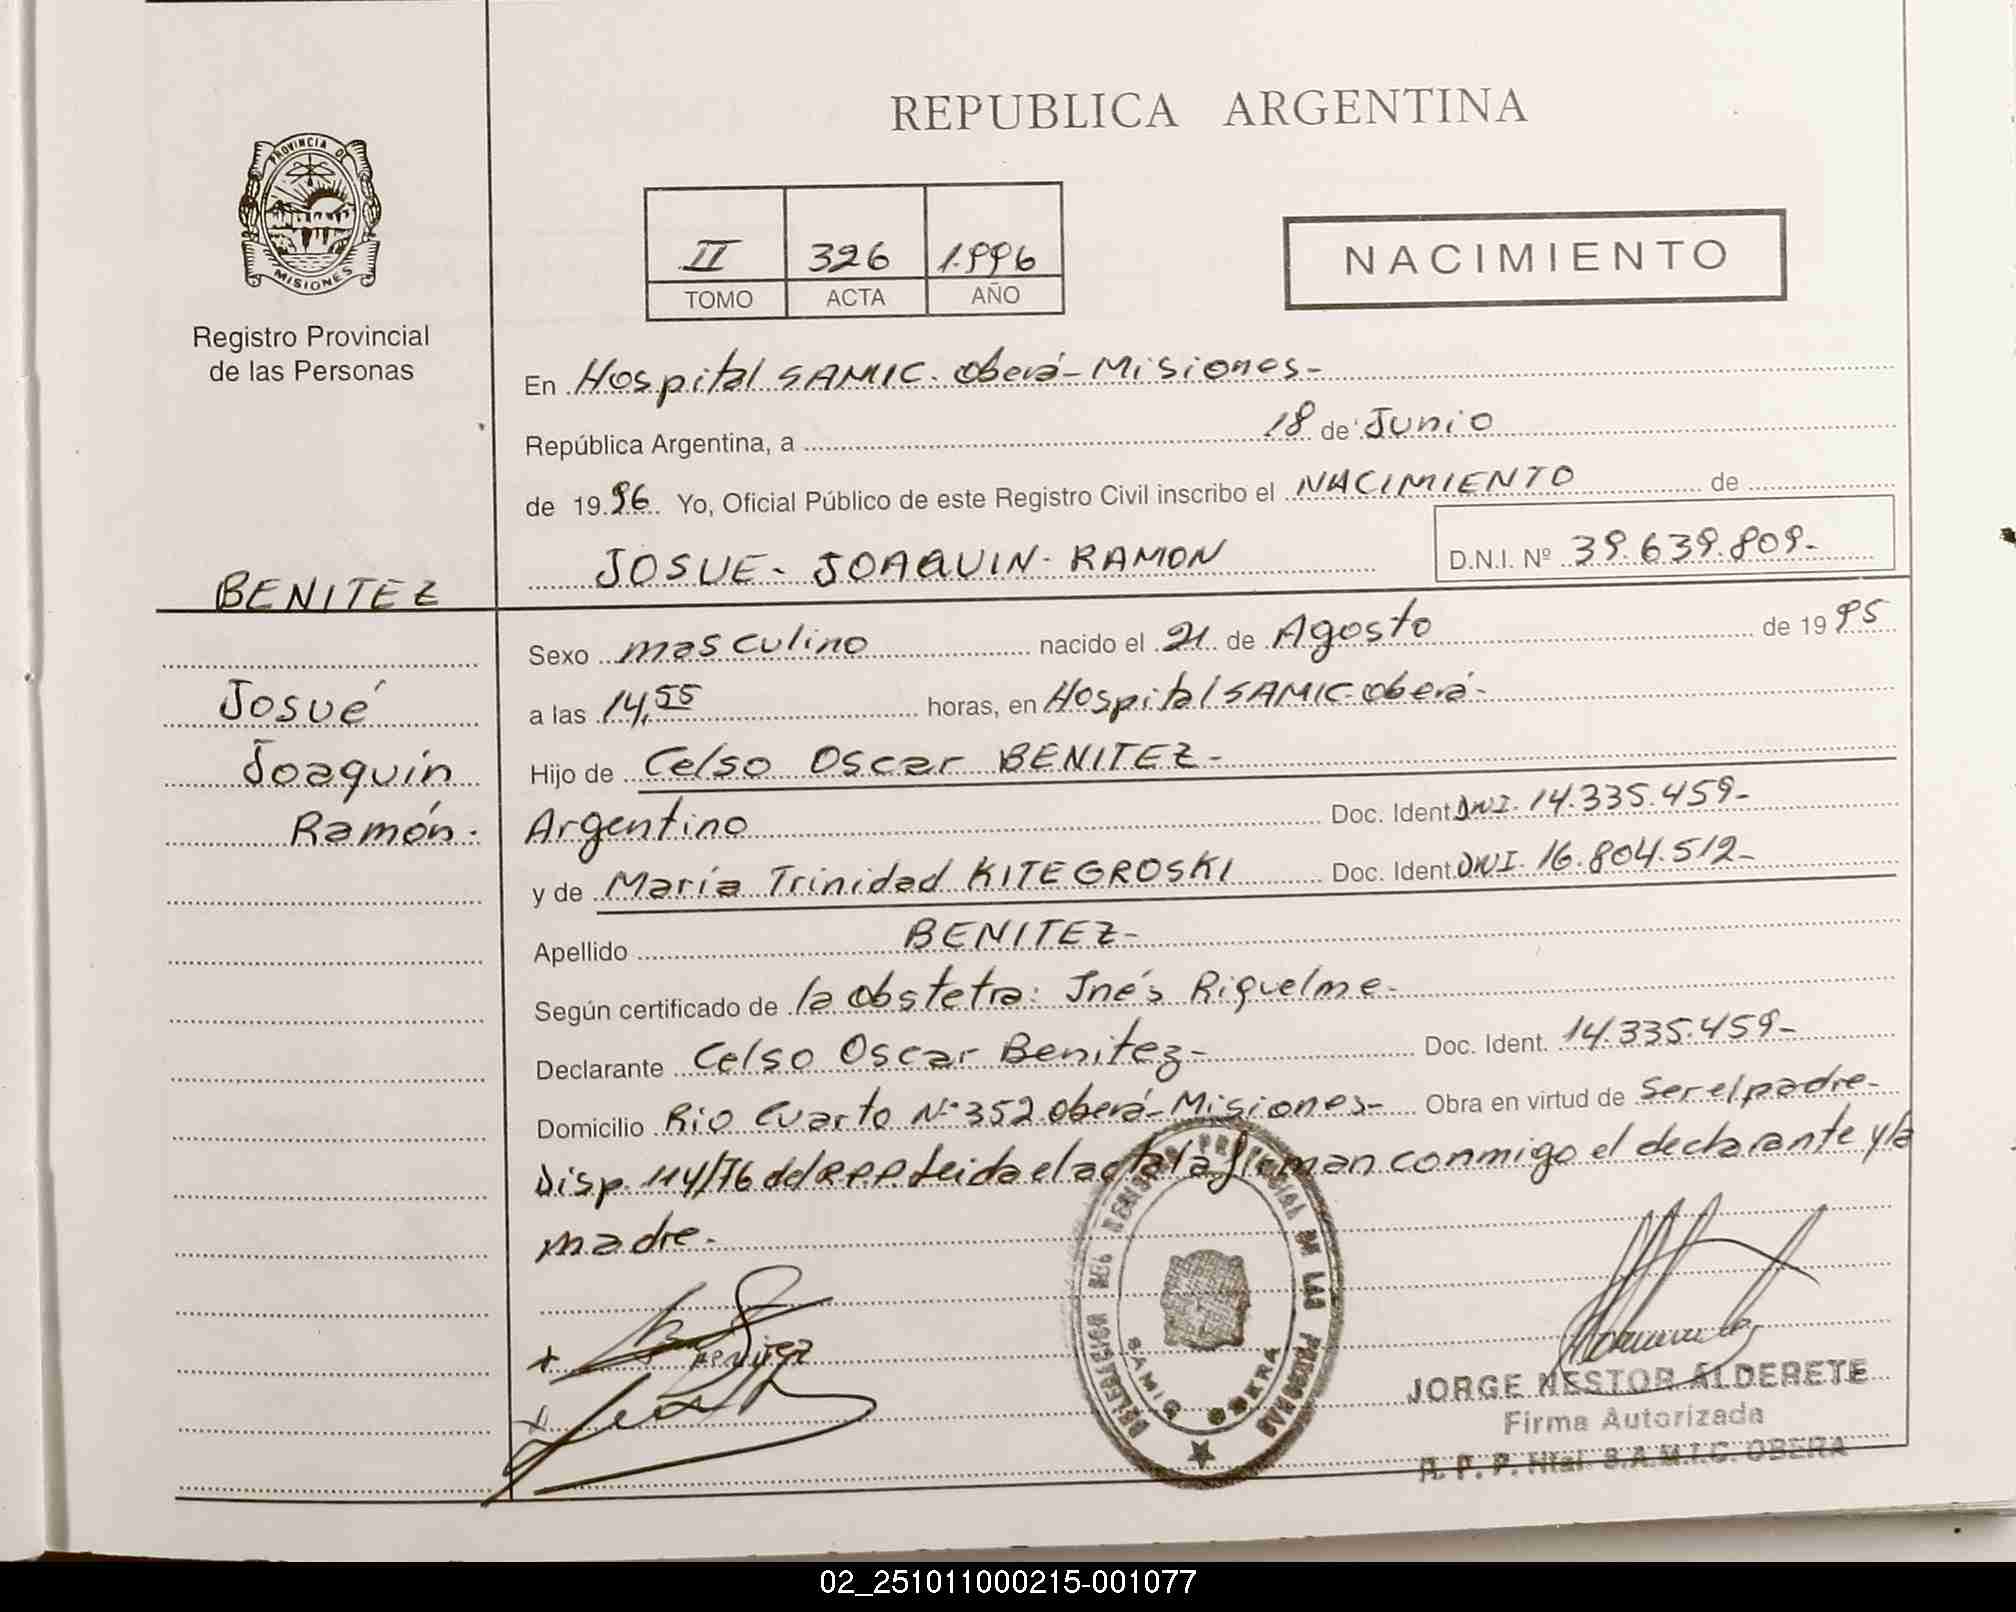 PROVINCIA DE
MISIONES
Registro Provincial
de las Personas
REPUBLICA ARGENTINA
II 326 1.996
TOMO ACTA AÑO
NACIMIENTO
En Hospital SAMIC. Oberá - Misiones -
República Argentina, a 18 de Junio
de 1996 Yo, Oficial Público de este Registro Civil inscribo el NACIMIENTO de
JOSUE - JOAQUIN - RAMON D.N.I. Nº 39.639.809-
BENITEZ
Josué
Joaquín
Ramón.
Sexo masculino nacido el 21 de Agosto de 1995
a las 14,55 horas, en Hospital SAMIC - Oberá -
Hijo de Celso Oscar BENITEZ -
Argentino Doc. Ident DNI. 14.335.459-
y de María Trinidad KITEGROSKI Doc. Ident DNI. 16.804.512-
Apellido BENITEZ -
Según certificado de la obstetra: Inés Riquelme -
Declarante Celso Oscar Benitez - Doc. Ident. 14.335.459-
Domicilio Rio Cuarto Nº 352. Oberá - Misiones - Obra en virtud de Ser el padre -
Disp. 114/76 del R.P.P. Leida el acta la firman conmigo el declarante y la
madre -
DELEGACION DEL REGISTRO PROVINCIAL DE LAS PERSONAS
SAMIC OBERA
JORGE NESTOR ALDERETE
Firma Autorizada
R. P. P. Htal. S.A.M.I.C. OBERA
02_251011000215-001077